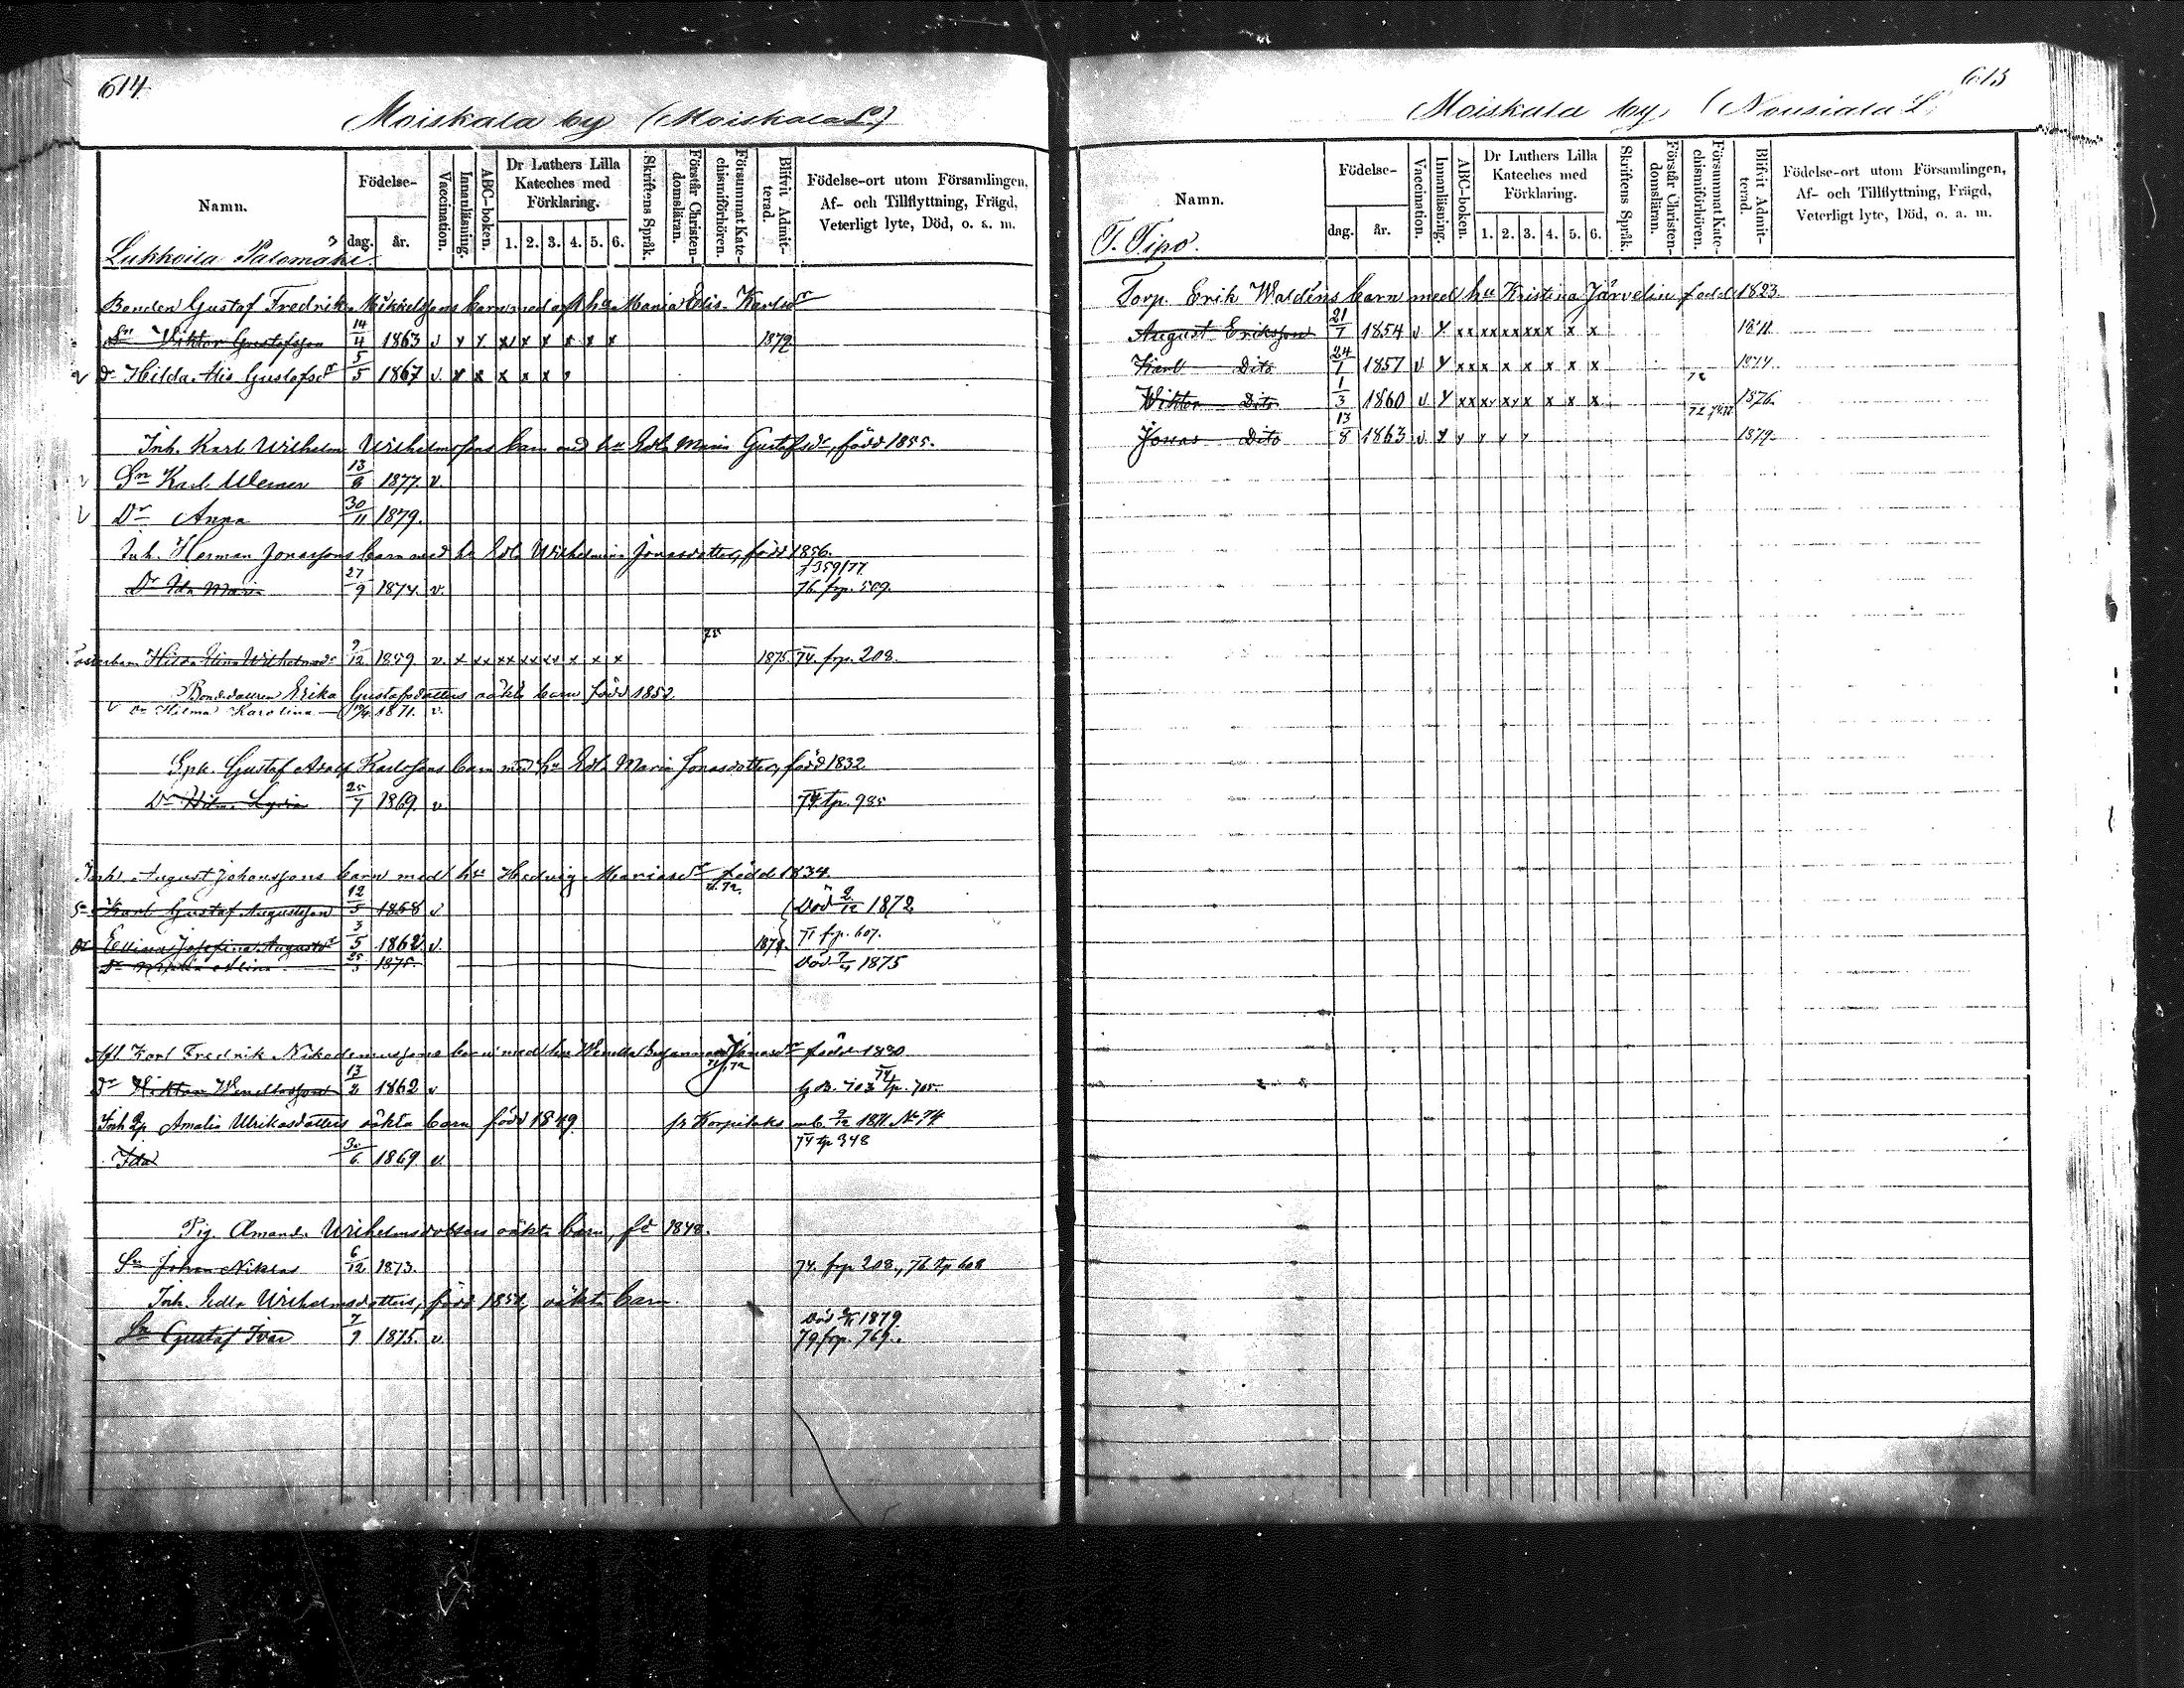 614.
Moiskala by (Moiskala L.)
Namn.
Födelse-
dag.
år.
Vaccination.
Innanläsning.
ABC-boken.
Dr Luthers Lilla
Kateches med
Förklaring.
1. 2. 3. 4. 5. 6.
Skriftens Språk.
Förstår Christen-
domsläran.
Försummat Kate-
chismiförhören.
Blifvit Admit-
terad.
Födelse-ort utom Församlingen,
Af- och Tillflyttning, Frägd,
Veterligt lyte, Död, o. s. m.
Lukkoila Palomäki.
Bonden Gustaf Fredrik Mikkelssons barn med hu Maria Elis. Karlsdr
Sn Viktor Gustafsson 14/4 1863 v x x x x x x x x 1879
v Dr Hilda Alis Gustafsdr 5/5 1867 v. x x x x x
Inh. Karl Wilhelm Wilhelmssons barn med hu Edla Maria Gustafsdr, född 1855.
v Sn Karl Werner 13/8 1877 v.
v Dr Anna 30/11 1879.
Inh. Herman Jonassons barn med hu Edla Wilhelmina Jonasdotter, född 1856.
359/77
Dr Ida Maria 27/9 1874. v. 76. frp. 509.
Hilda Alina Wilhelmsdr 9/12 1859 v. x xx xx xx xx x x x 1875. 74. frp. 208.
Bond.dottren Erika Gustafsdotters oäkta barn född 1852
v Dr Hilma Karolina 1871. v.
Gustaf Adolf Karlssons barn med hu Edla Maria Jonasdotter, född 1832
Dr Hilma Lydia 25/7 1869 v 74 tp. 985
Inh. August Johanssons barn med hu Hedvig Mariasdr född 1834
Sn Karl Gustaf Augustsson 12/5 1858 v Död 2/12 1872
Dr Ellina Josefina Augustsdr 3/5 1862 v. 71 frp. 607.
Dr Alina 25/3 1875. Död 7/4 1875
Karl Fredrik Nikodemussons barn med hu född 1830
Viktor 13/2 1862 v 703 tp. 705.
Inh Amalia Ulrikasdotters oäkta barn född 1849 fr Korpilaks mb 9/12 1871. No 74
74 tp 348
Ida 30/6 1869 v.
Pig. Amanda Wilhelmsdotters oäkta barn, fd 1848.
Sn Johan Niklas 6/12 1873. 74. frp 208, 76 tp 608
Inh. Edla Wilhelmsdotters, född 1851, oäkta barn.
Död 1879
Sn Gustaf Ivar 7/9 1875. v. 79 frp. 769.
613
Moiskala by (Nousiala L.)
Namn.
Födelse-
dag.
år.
Vaccination.
Innanläsning.
ABC-boken.
Dr Luthers Lilla
Kateches med
Förklaring.
1. 2. 3. 4. 5. 6.
Skriftens Språk.
Förstår Christen-
domsläran.
Försummat Kate-
chismiförhören.
Blifvit Admit-
terad.
Födelse-ort utom Församlingen,
Af- och Tillflyttning, Frägd,
Veterligt lyte, Död, o. s. m.
T. Tipo.
Torp. Erik Waldéns barn med hu Kristina Järvelin född 1823
August Eriksson 21/7 1854 v x xx xx xx xx x x 1871.
Karl Dito 24/1 1857 v x xx x x x x x x 1874
Wiktor Dito 1/3 1860 v x xx xx xx x x x 1876.
Jonas Dito 13/8 1863 v. x x x x x 1879.